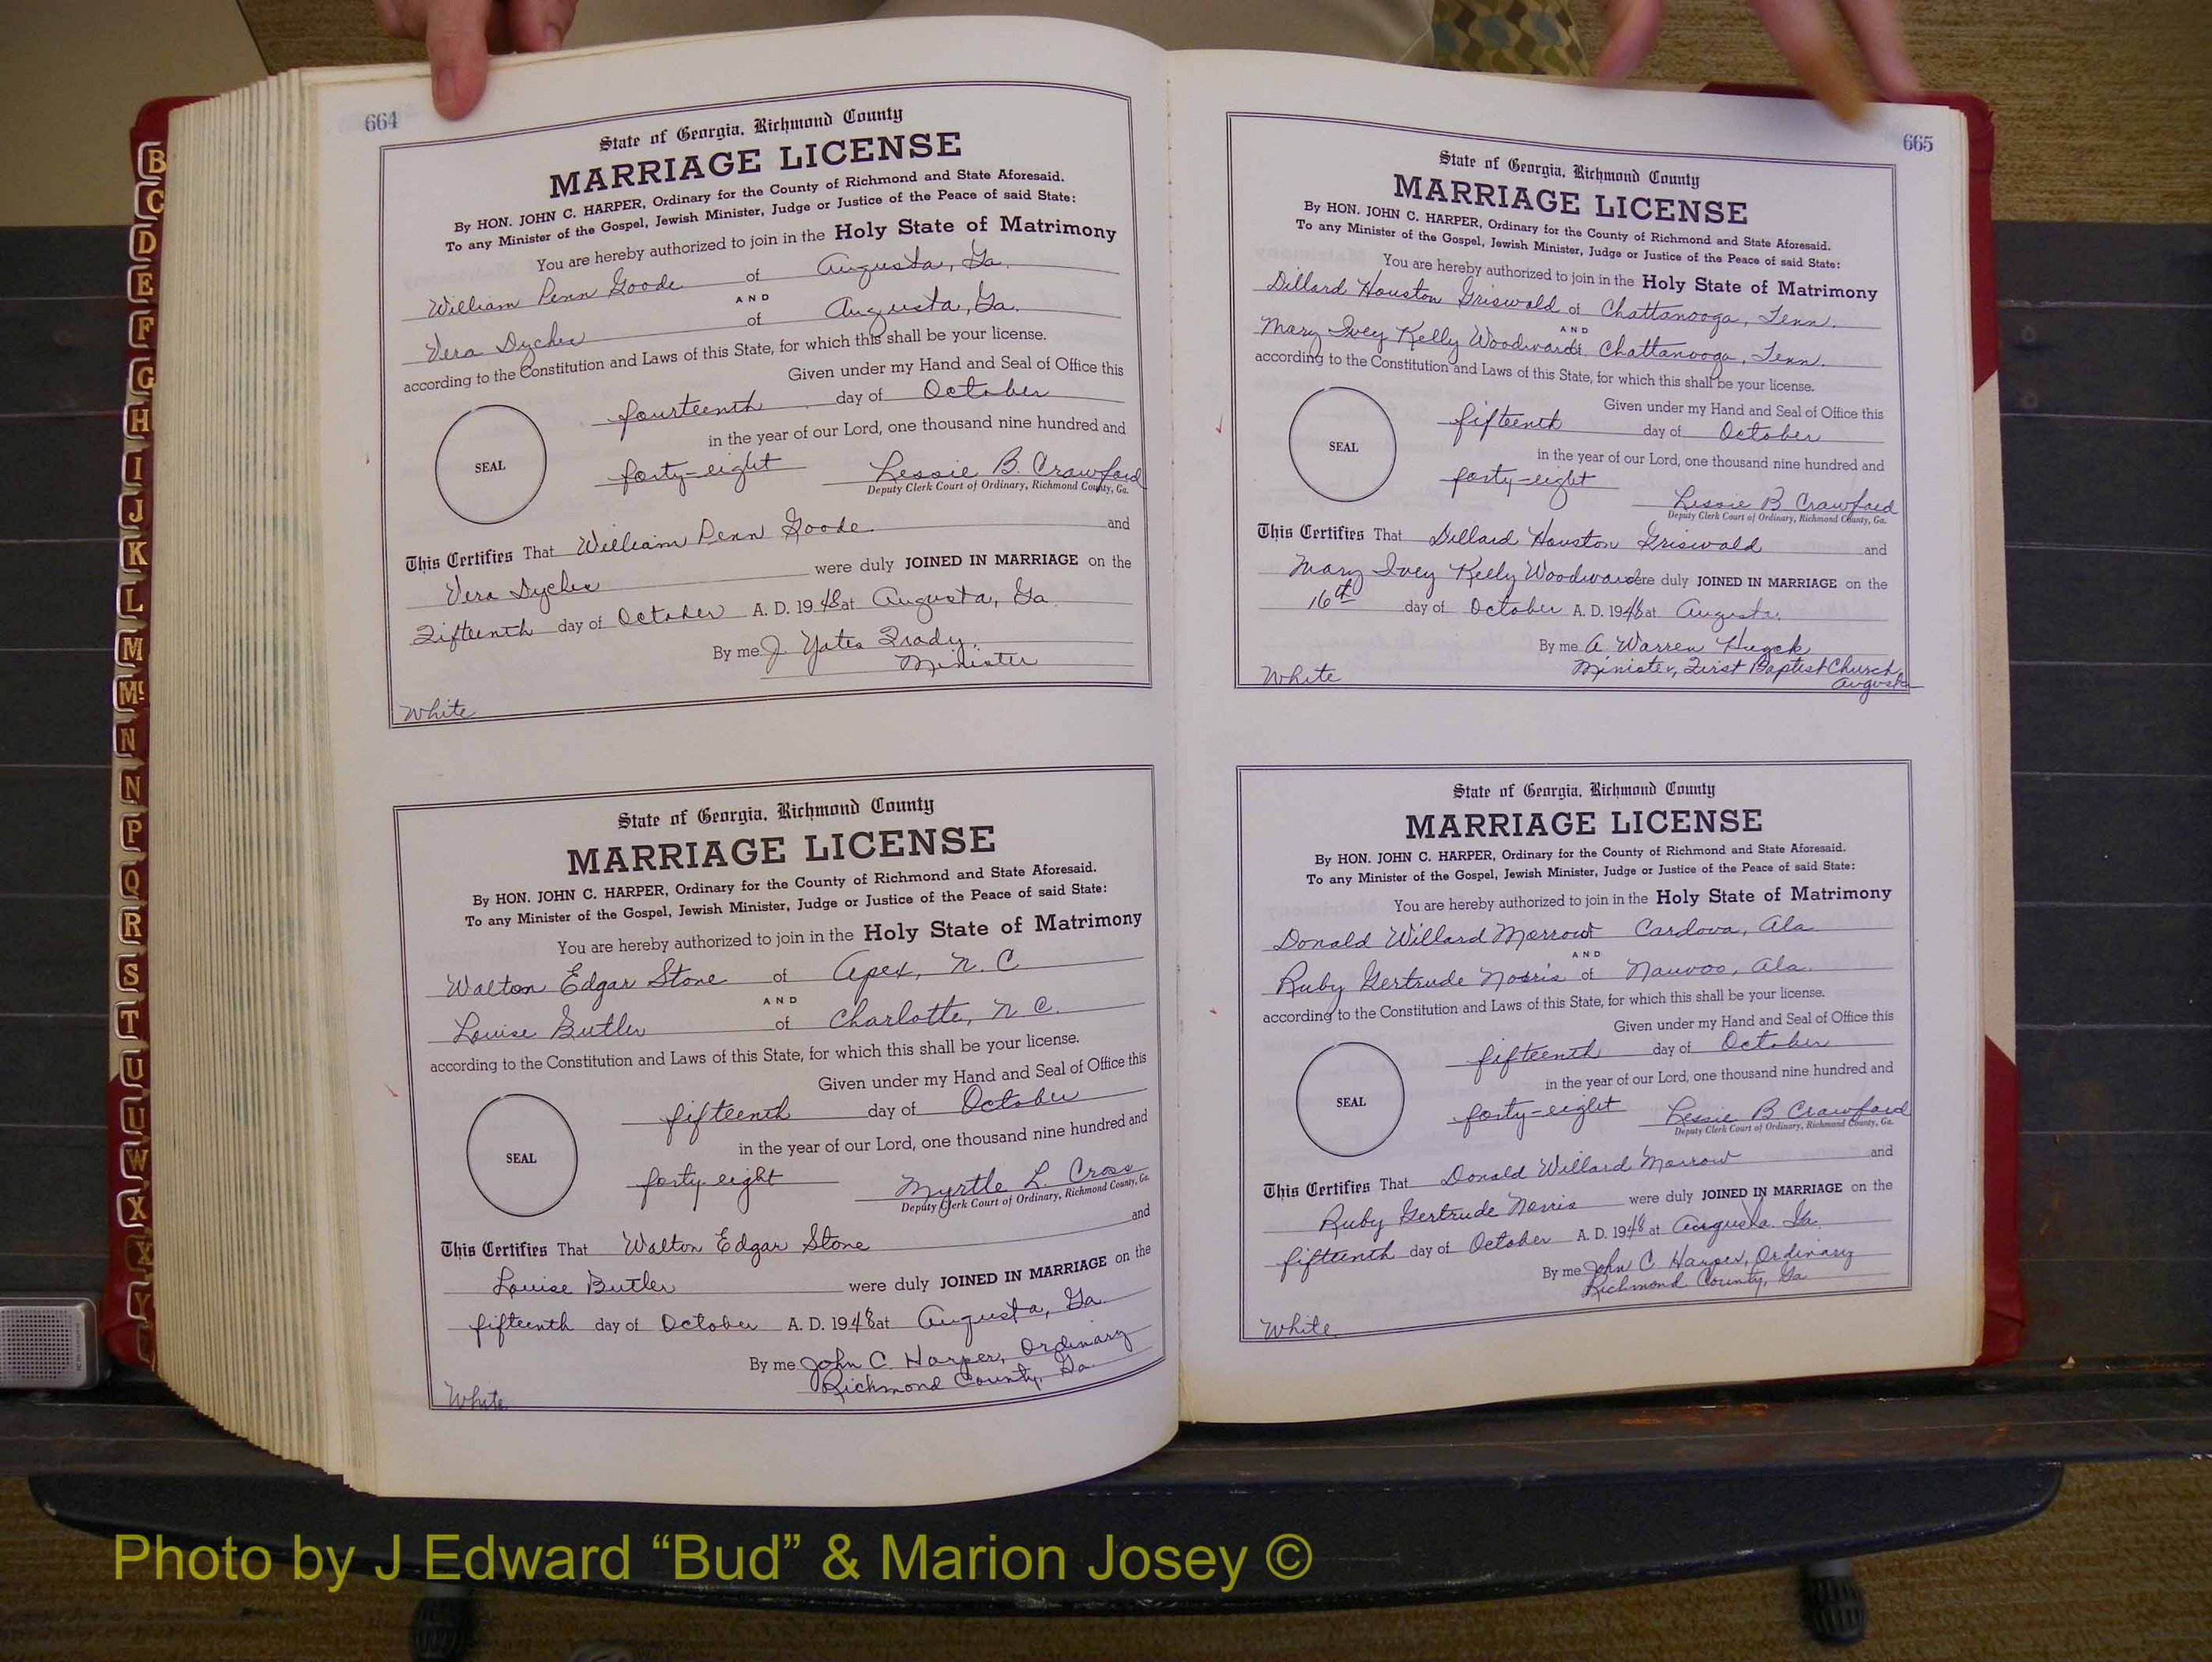 664
State of Georgia, Richmond County
MARRIAGE LICENSE
By HON. JOHN C. HARPER, Ordinary for the County of Richmond and State Aforesaid.
To any Minister of the Gospel, Jewish Minister, Judge or Justice of the Peace of said State:
You are hereby authorized to join in the Holy State of Matrimony
William Penn Goode of Augusta, Ga.
AND
Vera Dyches of Augusta, Ga.
according to the Constitution and Laws of this State, for which this shall be your license.
Given under my Hand and Seal of Office this
fourteenth day of October
in the year of our Lord, one thousand nine hundred and
SEAL
forty-eight Lessie B. Crawford
Deputy Clerk Court of Ordinary, Richmond County, Ga.
This Certifies That William Penn Goode and
Vera Dyches were duly JOINED IN MARRIAGE on the
Fifteenth day of October A. D. 1948 at Augusta, Ga
By me J. Yates Brady
Minister
White
State of Georgia, Richmond County
MARRIAGE LICENSE
By HON. JOHN C. HARPER, Ordinary for the County of Richmond and State Aforesaid.
To any Minister of the Gospel, Jewish Minister, Judge or Justice of the Peace of said State:
You are hereby authorized to join in the Holy State of Matrimony
Walton Edgar Stone of Apex, N. C.
AND
Louise Butler of Charlotte, N. C.
according to the Constitution and Laws of this State, for which this shall be your license.
Given under my Hand and Seal of Office this
fifteenth day of October
in the year of our Lord, one thousand nine hundred and
SEAL
forty-eight Myrtle L. Cross
Deputy Clerk Court of Ordinary, Richmond County, Ga.
This Certifies That Walton Edgar Stone and
Louise Butler were duly JOINED IN MARRIAGE on the
fifteenth day of October A. D. 1948 at Augusta, Ga.
By me John C. Harper, Ordinary
Richmond County, Ga.
White
665
State of Georgia, Richmond County
MARRIAGE LICENSE
By HON. JOHN C. HARPER, Ordinary for the County of Richmond and State Aforesaid.
To any Minister of the Gospel, Jewish Minister, Judge or Justice of the Peace of said State:
You are hereby authorized to join in the Holy State of Matrimony
Dillard Houston Griswald of Chattanooga, Tenn.
AND
Mary Ivey Kelly Woodward of Chattanooga, Tenn.
according to the Constitution and Laws of this State, for which this shall be your license.
Given under my Hand and Seal of Office this
fifteenth day of October
in the year of our Lord, one thousand nine hundred and
SEAL
forty-eight Lessie B. Crawford
Deputy Clerk Court of Ordinary, Richmond County, Ga.
This Certifies That Dillard Houston Griswald and
Mary Ivey Kelly Woodward were duly JOINED IN MARRIAGE on the
16th day of October A. D. 1948 at Augusta.
By me A. Warren Huyck
Minister, First Baptist Church
Augusta
White
State of Georgia, Richmond County
MARRIAGE LICENSE
By HON. JOHN C. HARPER, Ordinary for the County of Richmond and State Aforesaid.
To any Minister of the Gospel, Jewish Minister, Judge or Justice of the Peace of said State:
You are hereby authorized to join in the Holy State of Matrimony
Donald Willard Morrow of Cardova, Ala.
AND
Ruby Gertrude Norris of Nauvoo, Ala.
according to the Constitution and Laws of this State, for which this shall be your license.
Given under my Hand and Seal of Office this
fifteenth day of October
in the year of our Lord, one thousand nine hundred and
SEAL
forty-eight Lessie B. Crawford
Deputy Clerk Court of Ordinary, Richmond County, Ga.
This Certifies That Donald Willard Morrow and
Ruby Gertrude Norris were duly JOINED IN MARRIAGE on the
fifteenth day of October A. D. 1948 at Augusta, Ga.
By me John C. Harper, Ordinary
Richmond County, Ga
White
B
C
D
E
F
G
H
I
J
K
L
M
Mc
N
N
P
Q
R
S
T
U
U
W
X
X
Y
Photo by J Edward “Bud” & Marion Josey ©